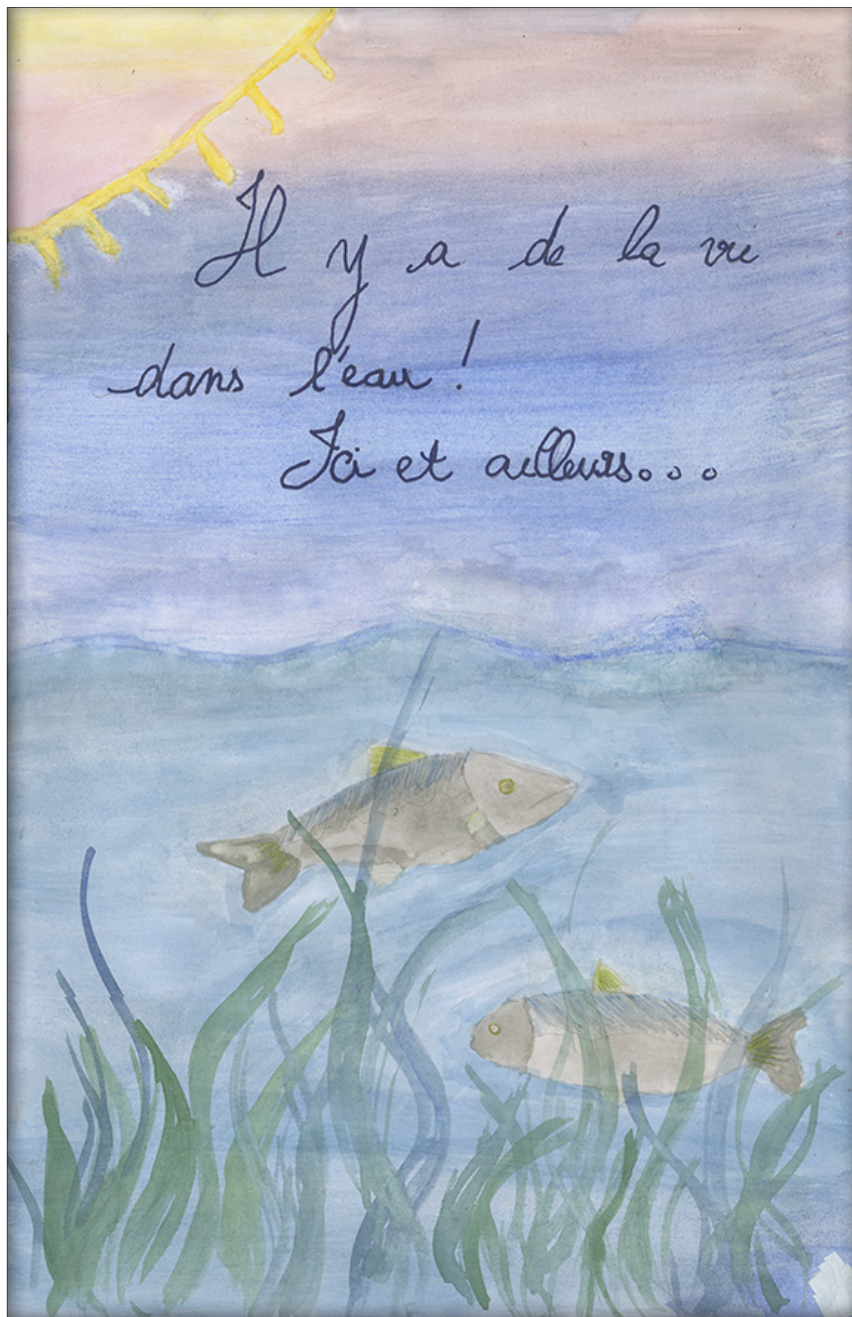 Il y a de la vie
dans l'eau !
Ici et ailleurs...